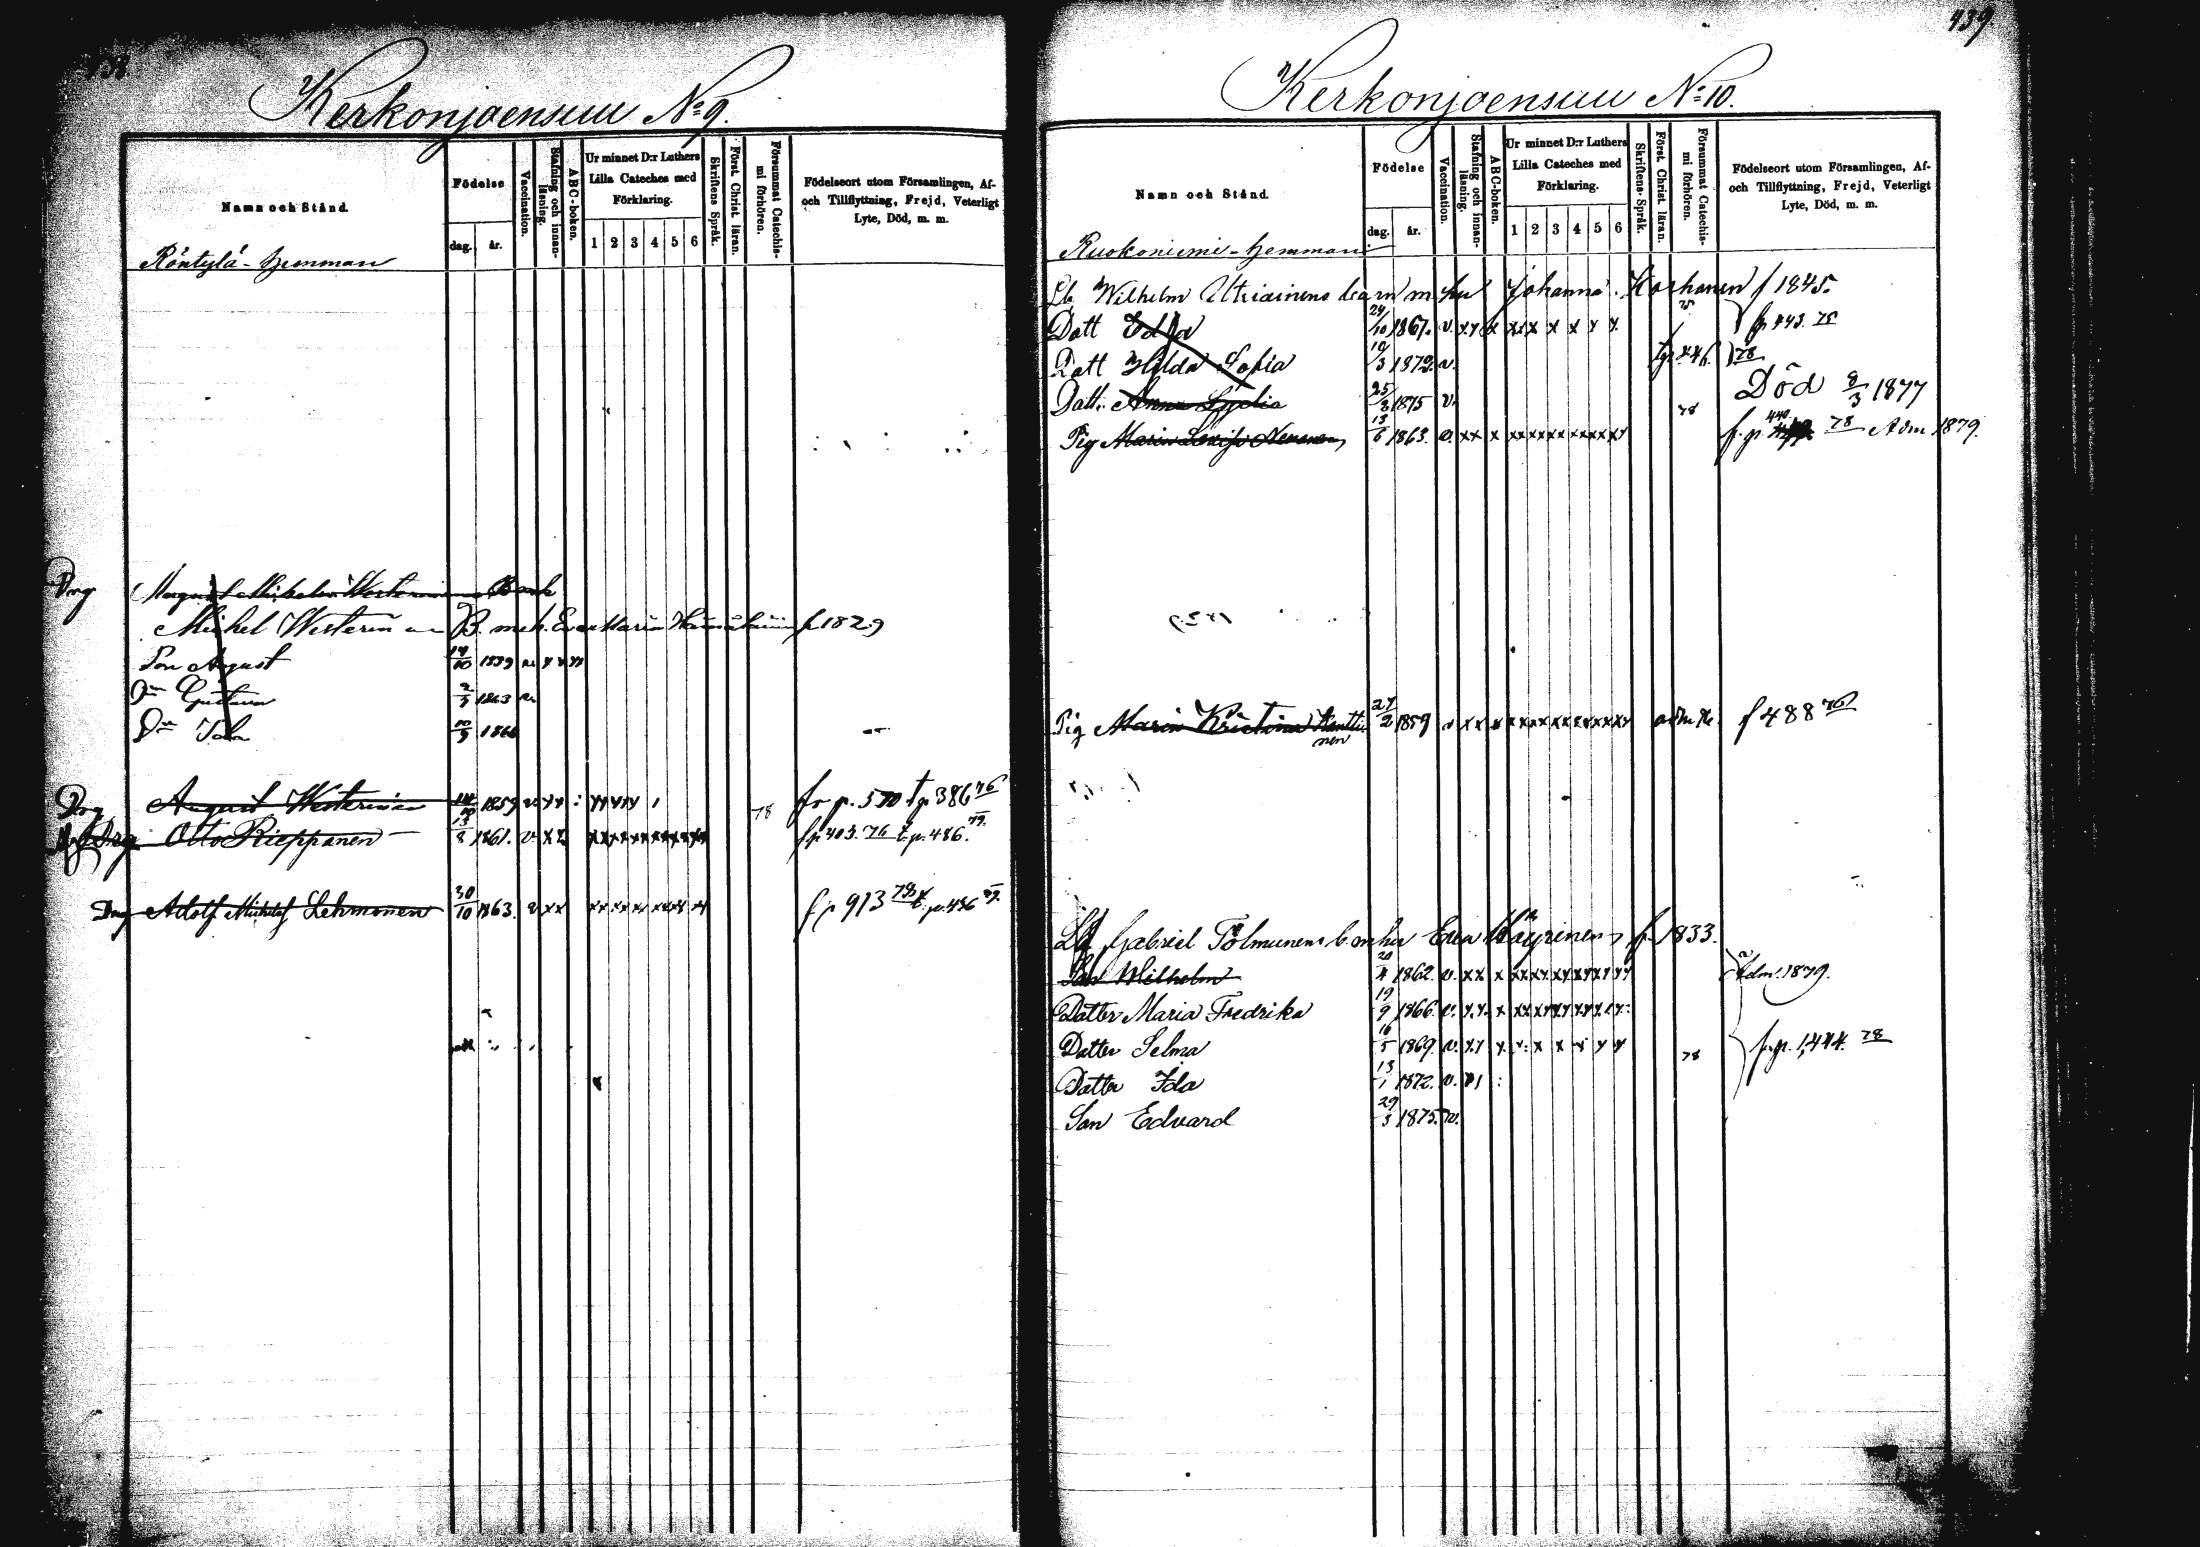 438.
Kerkonjoensuu No 9.
Namn och Stånd.
Födelse
dag.
år.
Vaccination.
Stafning och innan-
läsning.
ABC-boken.
Ur minnet D:r Luthers
Lilla Cateches med
Förklaring.
1 2 3 4 5 6
Skriftens Språk.
Först. Christ. läran.
Försummat Catechis-
mi förhören.
Födelseort utom Församlingen, Af-
och Tillflyttning, Frejd, Veterligt
Lyte, Död, m. m.
Röntylä-hemman
Drg
Michel Westerin B. m. h. Eva Maria f 1829
Son August 14/10 1859 v.
Dn Gustava 2/3 1863 v.
Dn Ida 10/3 1866
Drg August Westerinen 14/10 1859 v. 78 fr p. 570 t p 386 76
Drg Otto Rieppanen 13/8 1861. v. x x f p 403. 76 t. p. 486. 79.
Drg Adolf Michel Lehmonen 30/10 1863. v xx f p 913 78 t. p. 486 79.
439
Kerkonjoensuu No 10.
Namn och Stånd.
Födelse
dag.
år.
Vaccination.
Stafning och innan-
läsning.
ABC-boken.
Ur minnet D:r Luthers
Lilla Cateches med
Förklaring.
1 2 3 4 5 6
Skriftens Språk.
Först. Christ. läran.
Försummat Catechis-
mi förhören.
Födelseort utom Församlingen, Af-
och Tillflyttning, Frejd, Veterligt
Lyte, Död, m. m.
Ruokoniemi-hemman
Lb Wilhelm Utriainens barn m hu Johanna Korhonen f 1845.
Dott Edla 24/10 1867. v. x x x x x x x x x fp 443. 78
Dott Hilda Sofia 19/3 1872. v. tp. 446. 78
Dott. Anna Lydia 25/3 1875 v. Död 8/3 1877
Pig Maria Lovisa Nenonen 13/6 1863. v. xx x xx xx xx xx xx xx 78 f. p. 440 78 Adm 1879.
Pig Maria Kristina Kantti-
nen 27/2 1859 v xx x xx xx xx xx xx xx adm 76. f 488 76
Lb Gabriel Tolmunens b. m hu Eva Väyrinen f. 1833.
Son Wilhelm 20/4 1862. v. xx x xx xx xx xx xx xx Adm. 1879.
Datter Maria Fredrika 19/9 1866. v. x x x xx xx xx xx xx xx
Datter Selma 16/5 1869. v. x x x x x x x x x 78 f. p. 1,444. 78
Datter Ida 13/1 1872. v.
Son Edvard 29/3 1875. v.